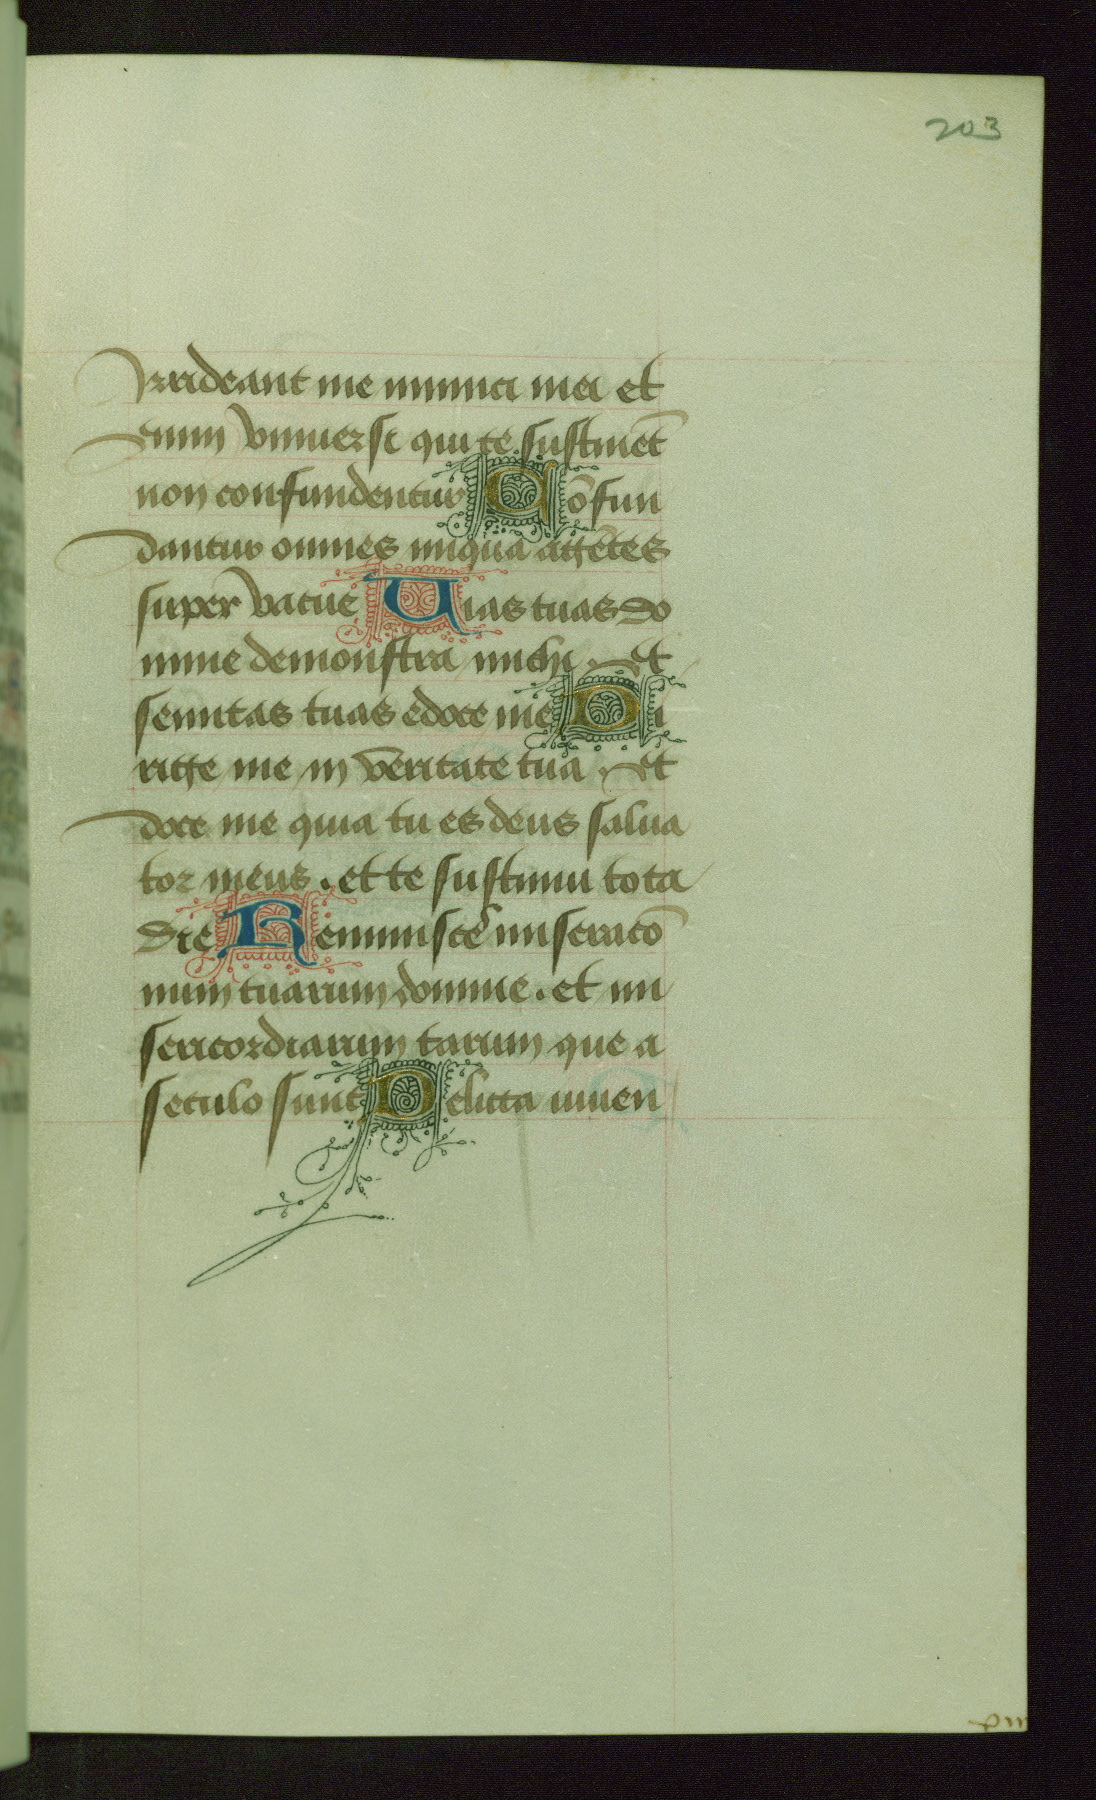 203
Irrideant me inimici mei et
enim vniuersi qui te sustinēt
non confundentur Cōfun
dantur omnes iniqua agētes
super vacue Uias tuas do
mine demonstra michi . Et
semitas tuas edoce me Di
rige me in veritate tua . Et
doce me quia tu es deus salua
tor meus . et te sustinui tota
die Reminiscē miseracō
num tuarum domine . et mi
sericordiarum tarum que a
seculo sunt Delicta iuuen